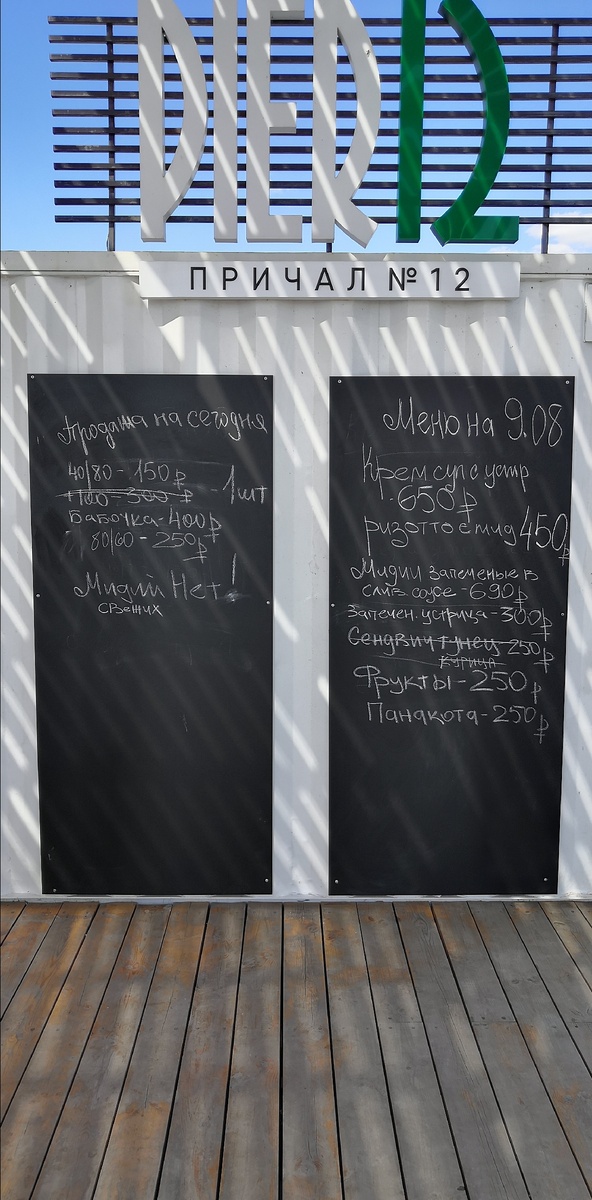 PIER 12
ПРИЧАЛ №12
Продажа на сегодня
40/80 - 150 ₽
+100 - 300 ₽ - 1 шт
Бабочка - 400 ₽
80/60 - 250 ₽
Мидий Нет!
свежих
Меню на 9.08
Крем суп с устр
650 ₽
ризотто с мид 450 ₽
Мидии запеченые в
слив соусе - 690 ₽
Запечен. устрица - 300 ₽
Сендвич тунец 250 ₽
курица
Фрукты - 250 ₽
Панакота - 250 ₽